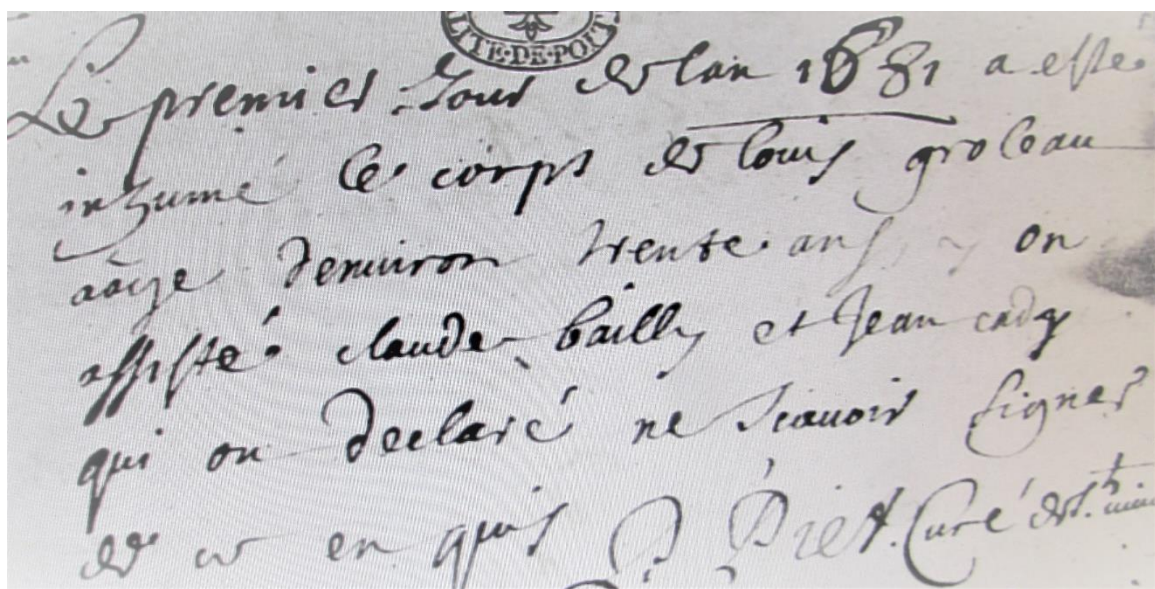 LITE·DE·POIT
Le premier Jour de lan 1681 a esté
inhumé le corps de louis groleau
aâige denuiron trente ans y on
assisté claude bailly et Jean cady
qui on declaré ne scauoir signer
de ce en quis P Piet. Curé de St.